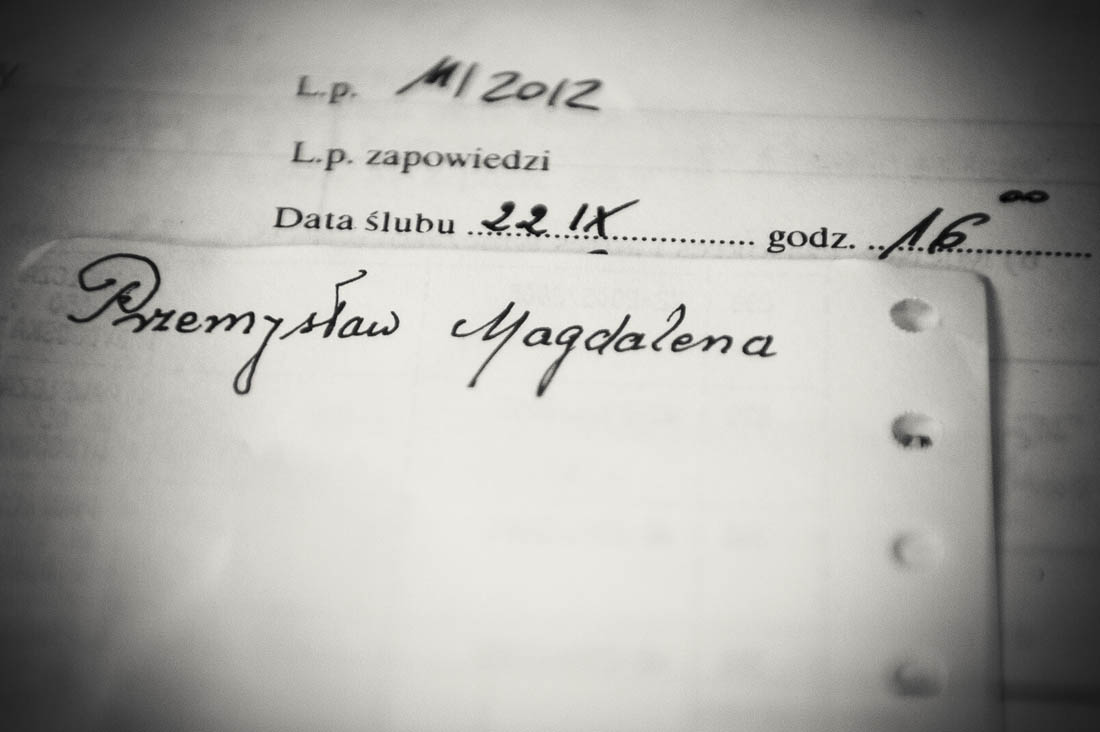 L.p. 11/2012
L.p. zapowiedzi
Data ślubu 22 IX godz. 16⁰⁰
Przemysław Magdalena